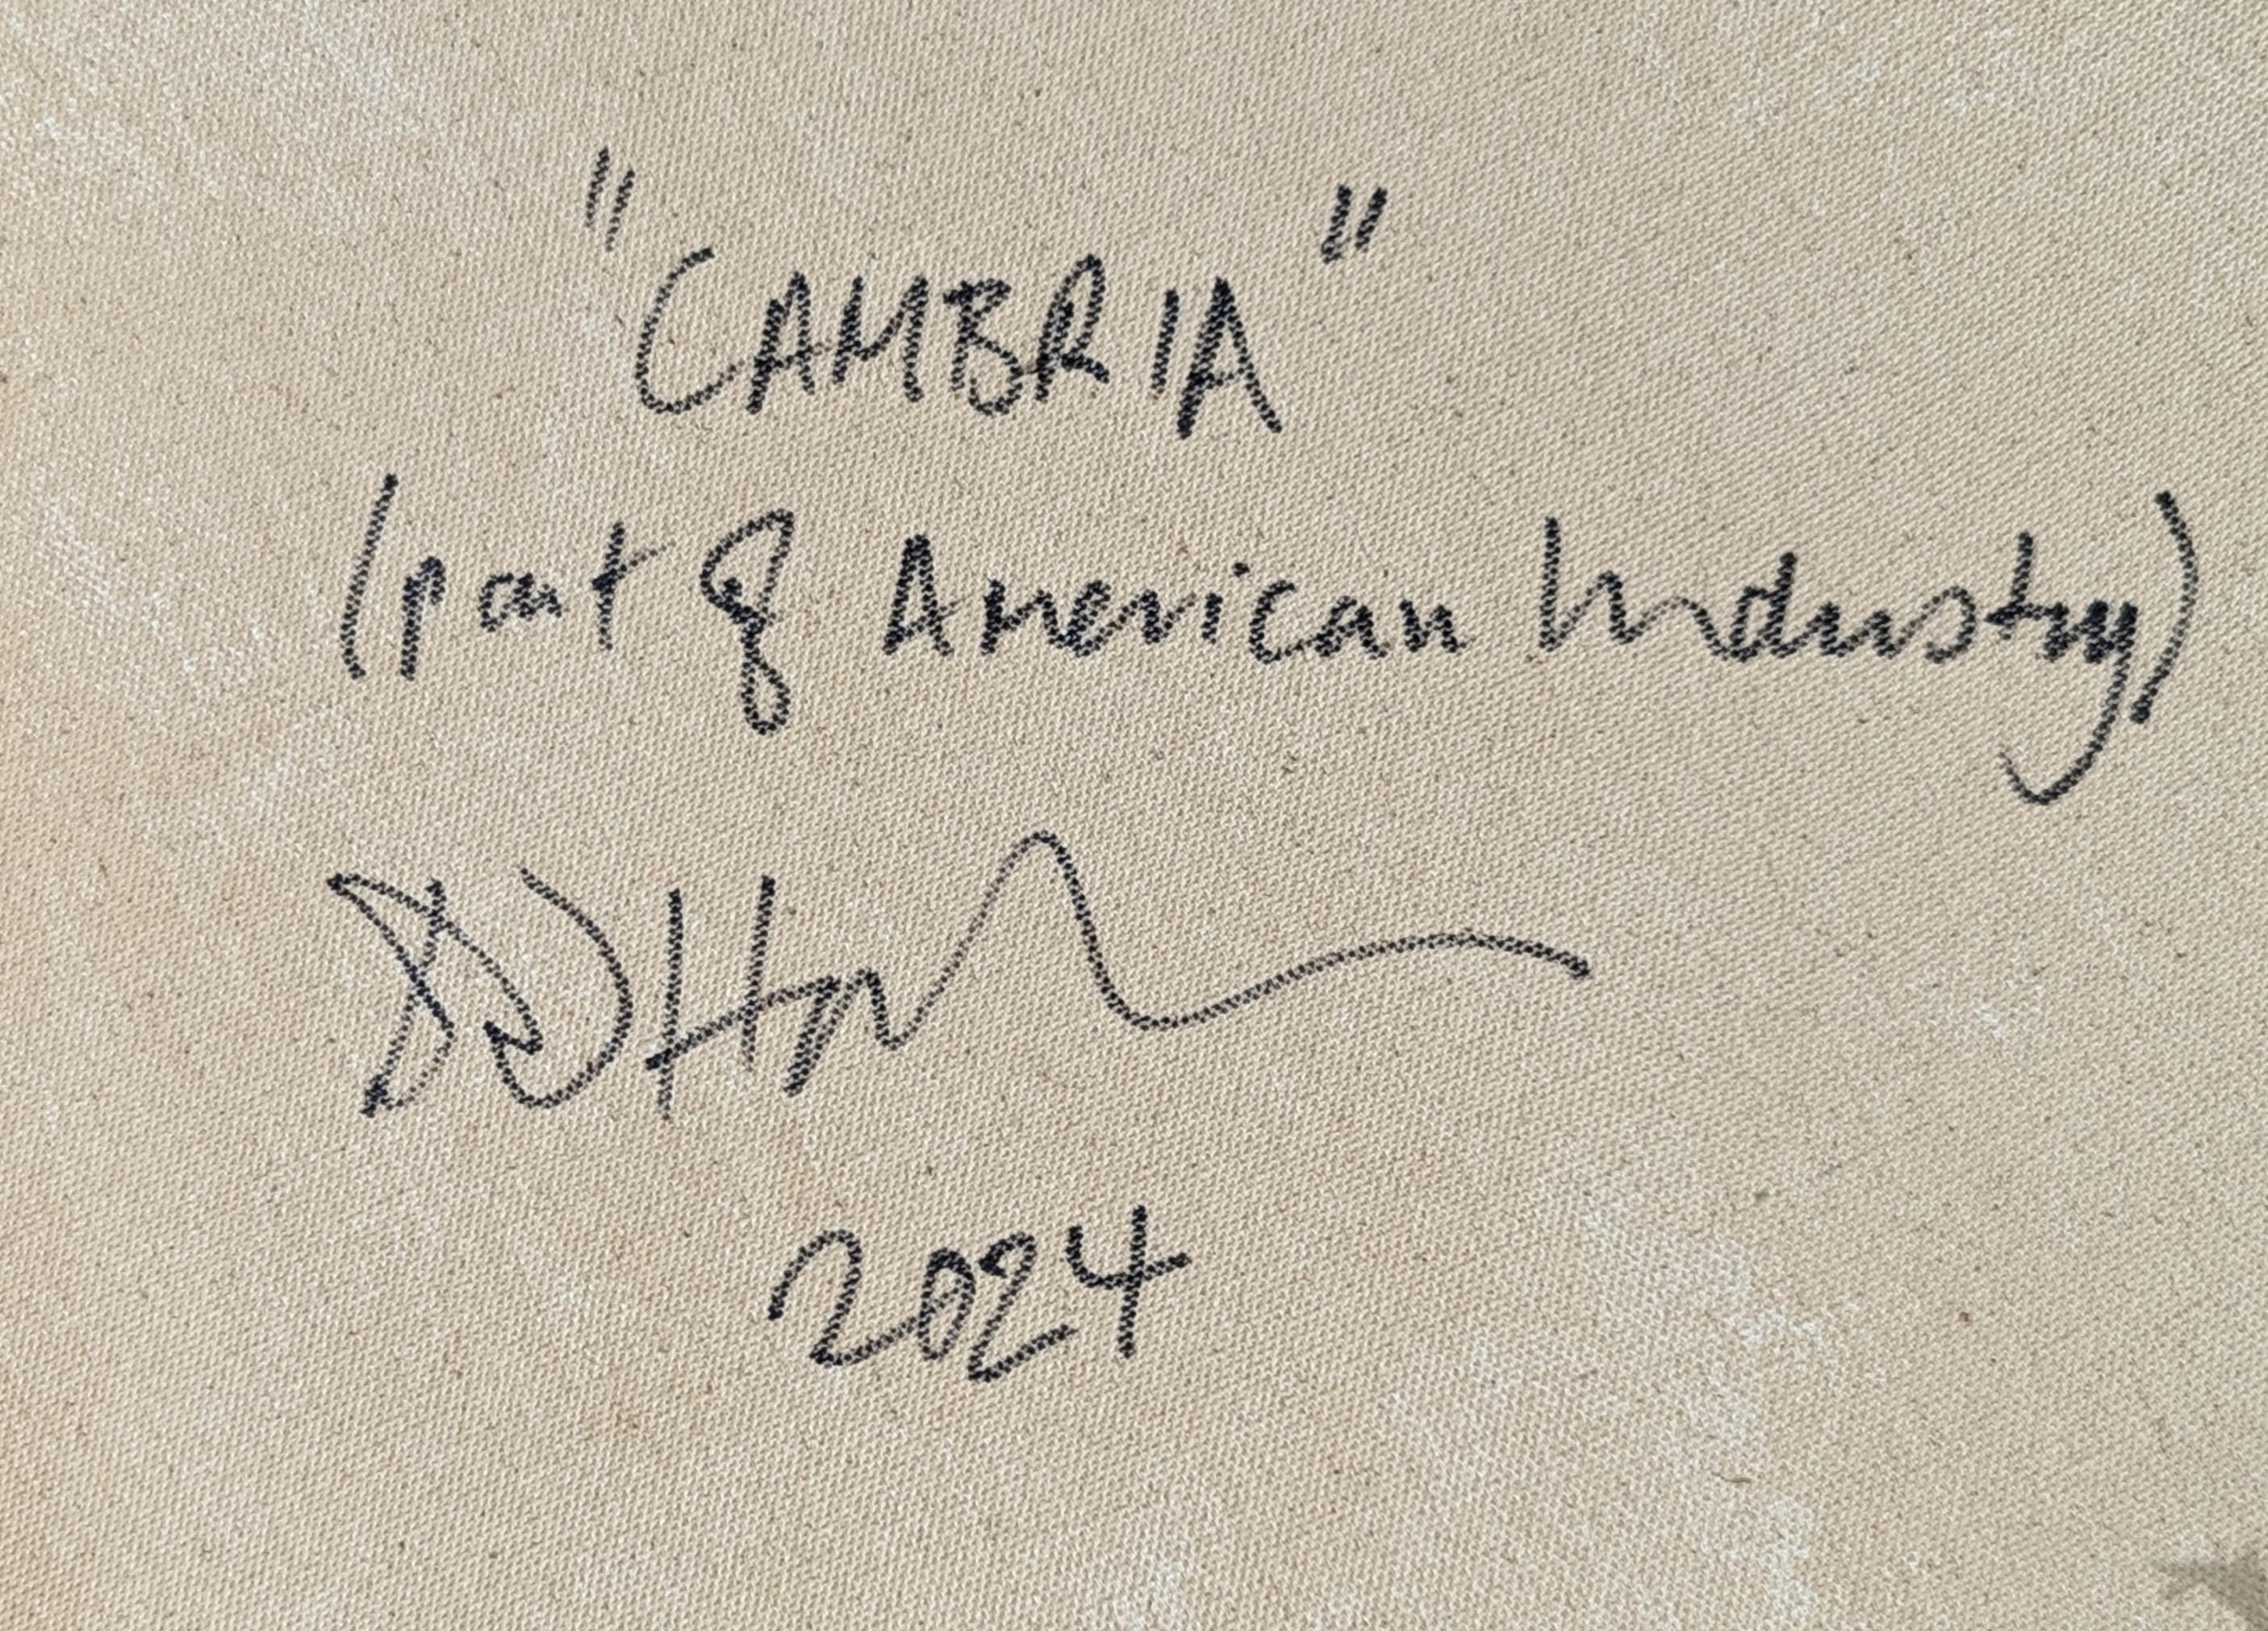 "CAMBRIA"
(part of American Industry)
2024